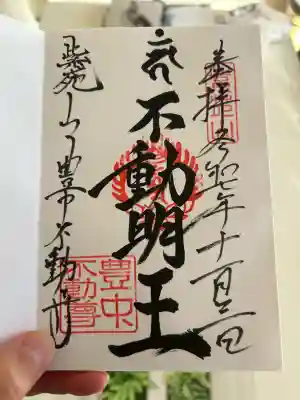 奉拝 令和七年十一月三日
不動明王
豊中不動尊
豊中
不動尊